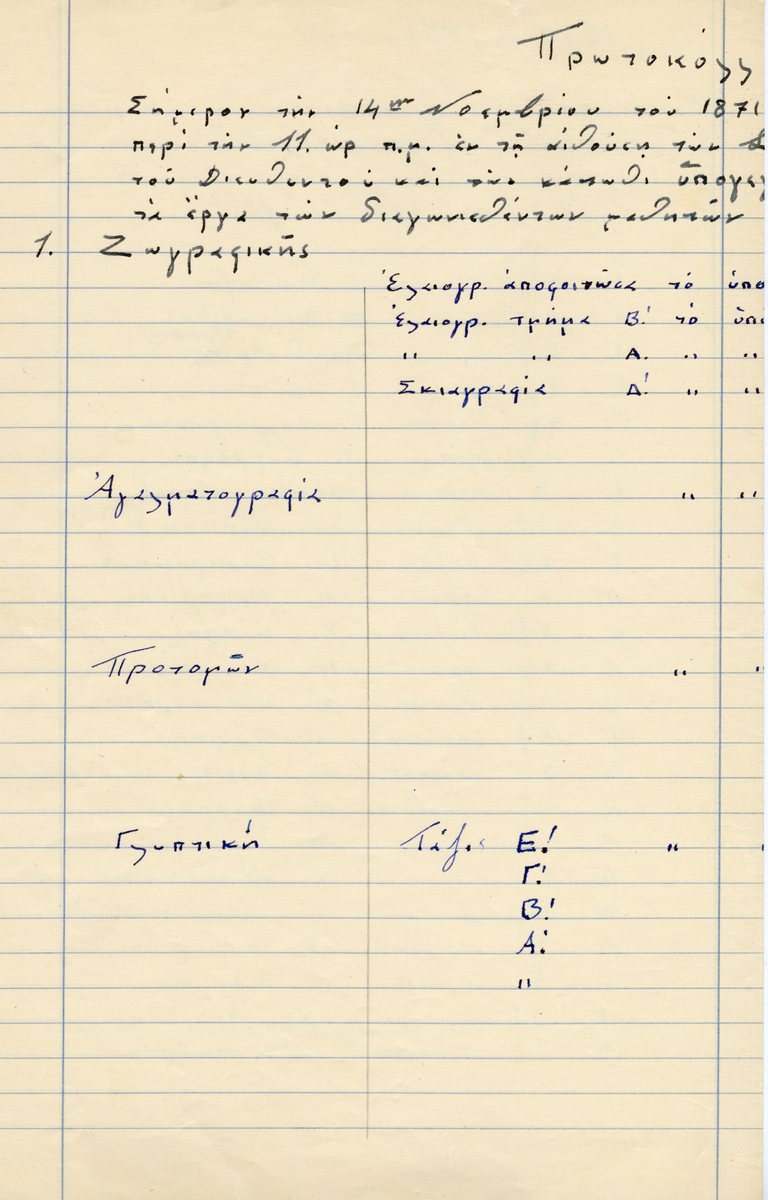 Πρωτοκόλλ
Σήμερον τὴν 14ην Νοεμβρίου τοῦ 1871
περὶ τὴν 11. ὥρ π.μ. ἐν τῇ αἰθούσῃ τῶν
τοῦ Διευθυντοῦ καὶ τῶν κάτωθι ὑπογεγ
τὰ ἔργα τῶν διαγωνισθέντων μαθητῶν
1. Ζωγραφικῆς
Ἐλαιογρ. ἀποφοιτῶσα τὸ ὑπο
Ἐλαιογρ. τμῆμα Β.' τὸ ὑπ
" " Α. " "
Σκιαγραφία Δ.' " "
Ἀγαλματογραφία " "
Προτομῶν " "
Γλυπτική Τάξις Ε.' "
Γ.'
Β.'
Α.'
"